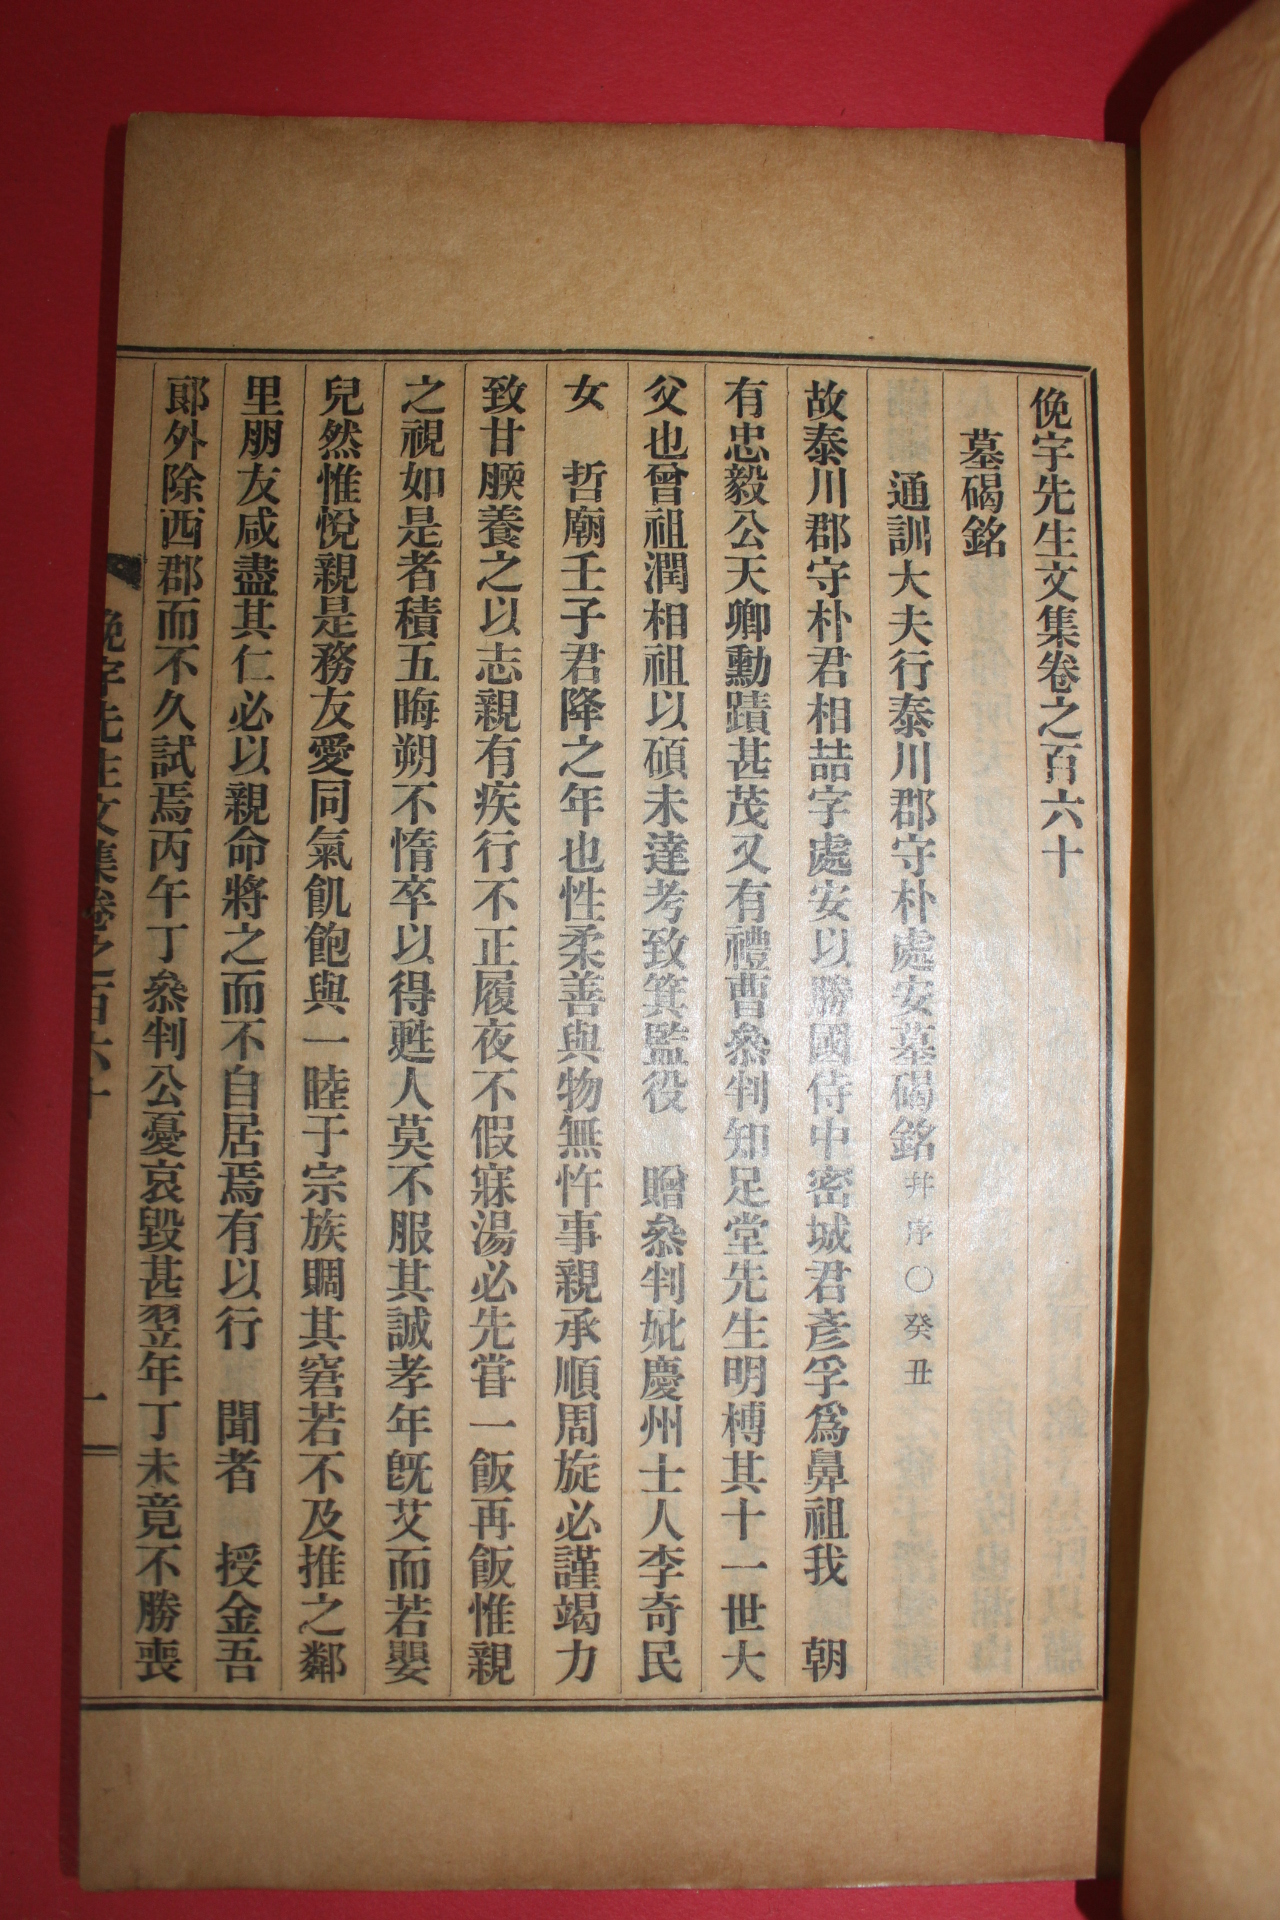 俛宇先生文集卷之百六十
墓碣銘
通訓大夫行泰川郡守朴處安墓碣銘 幷序○癸丑
故泰川郡守朴君相喆字處安以勝國侍中密城君彥孚爲鼻祖我 朝
有忠毅公天卿勳蹟甚茂又有禮曹叅判知足堂先生明榑其十一世大
父也曾祖潤相祖以碩未達考致箕監役 贈叅判妣慶州士人李奇民
女 哲廟壬子君降之年也性柔善與物無忤事親承順周旋必謹竭力
致甘腝養之以志親有疾行不正履夜不假寐湯必先嘗一飯再飯惟親
之視如是者積五晦朔不惰卒以得甦人莫不服其誠孝年旣艾而若嬰
兒然惟悅親是務友愛同氣飢飽與一睦于宗族賙其窘若不及推之鄰
里朋友咸盡其仁必以親命將之而不自居焉有以行 聞者 授金吾
郞外除西郡而不久試焉丙午丁叅判公憂哀毀甚翌年丁未竟不勝喪
俛宇先生文集卷之百六十 一